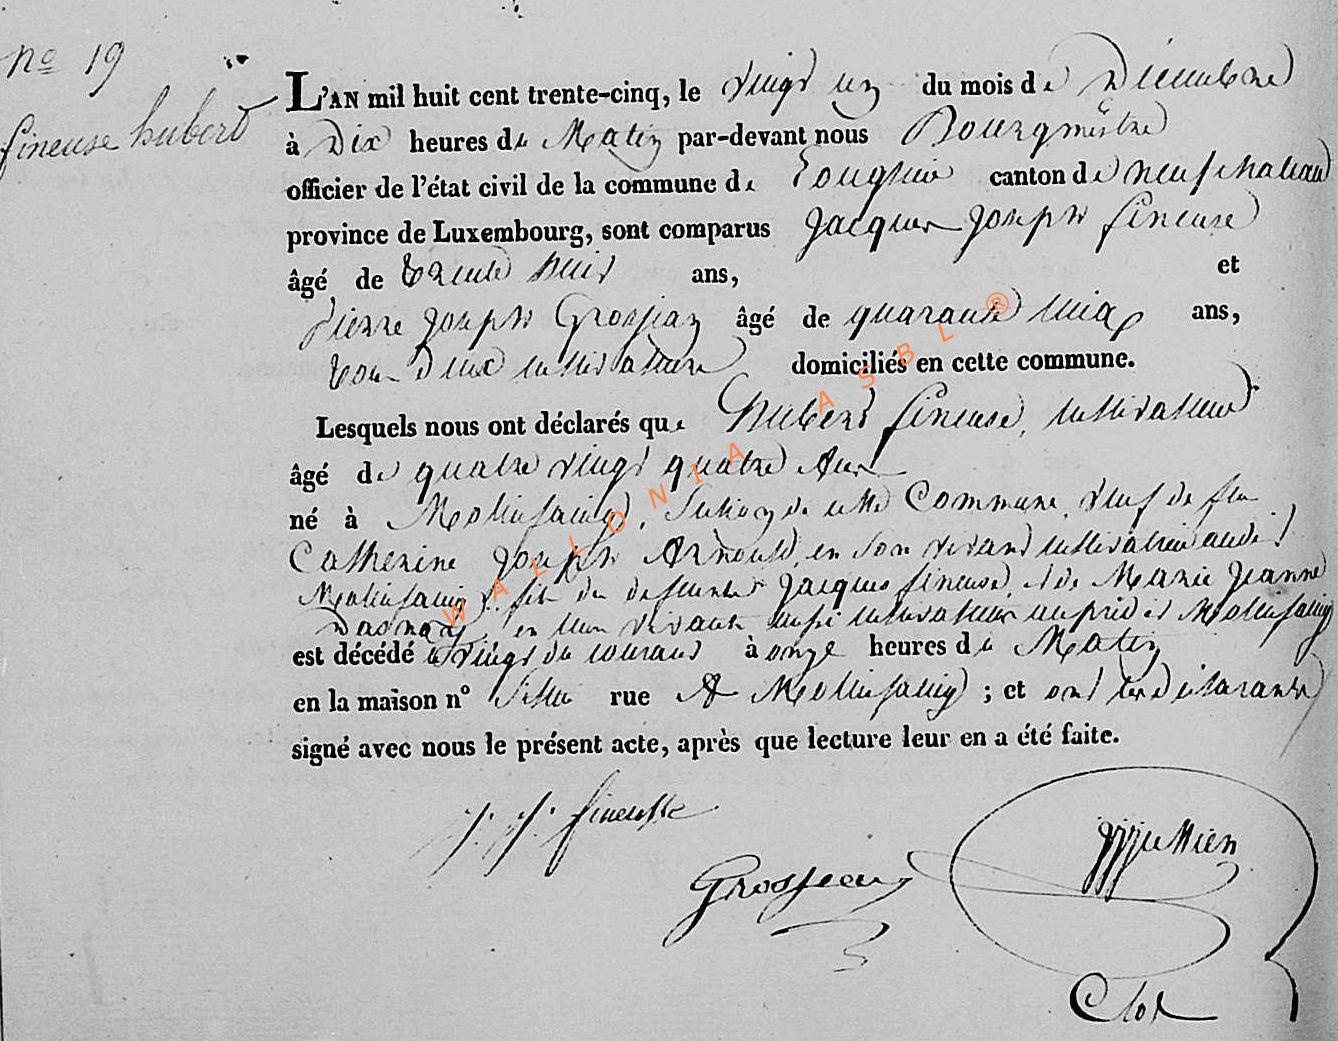 n° 19
fineuse hubert
L'AN mil huit cent trente-cinq, le vingt un du mois de Décembre
à Dix heures du Matin par-devant nous Bourgmestre
officier de l'état civil de la commune de canton de neufchateau
province de Luxembourg, sont comparus Jacques Joseph fineuse
âgé de trente huit ans, et
Pierre Joseph Grosjean âgé de quarante ans,
tous deux cultivateurs domiciliés en cette commune.
Lesquels nous ont déclarés que Hubert fineuse, cultivateur
âgé de quatre vingt quatre Ans
né à Molinfaing, Section de cette Commune, veuf de feu
Catherine Joseph Arnould, en son vivant cultivatrice audit
Molinfaing, fils des defunts Jacques fineuse, et de Marie Jeanne
en leur vivant aussi cultivateurs audit Molinfaing
est décédé le vingt du courant à onze heures du Matin
en la maison n° rue A Molinfaing ; et ont les déclarants
signé avec nous le présent acte, après que lecture leur en a été faite.
J. J. fineusse
Grosjean
Clos
WALLONIA ASBL ®